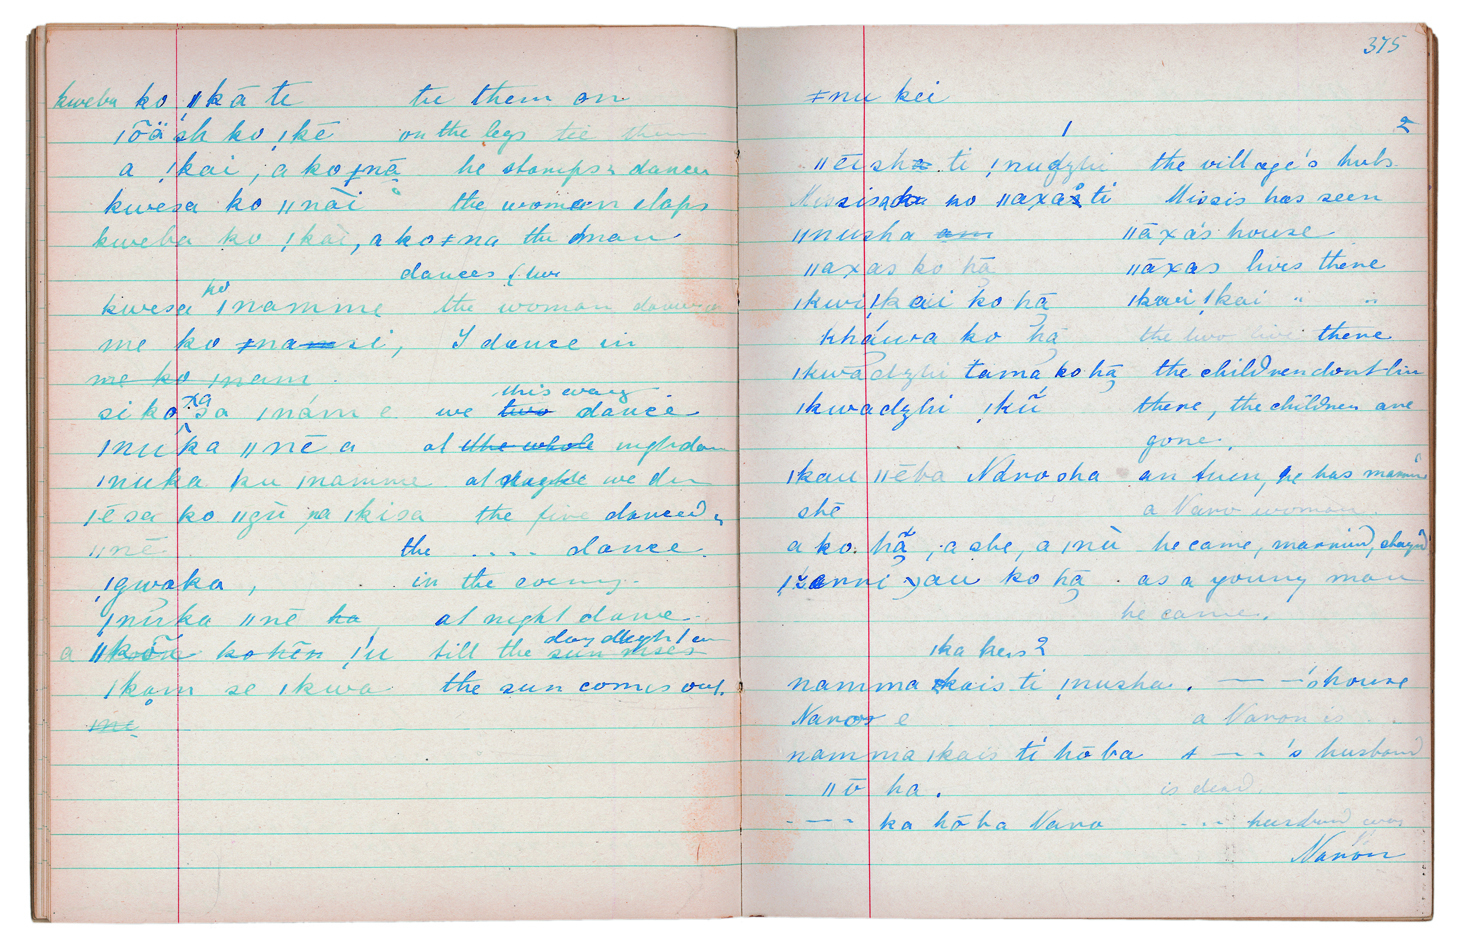 kweba ko ǁkā te tie them on
ǀōäsh ko ǀkē on the legs tie them
a ǃkai, a ko ǂnā he stamps & dances
kwesa ko ǁnāi the woman claps
kweba ko ǃkai, a ko ǂna the man
dances (two
kwesa ko ǀnamme the woman dances
me ko ǂnamsi, I dance in
me ko ǀnam
this way
si ko xa sa ǀnám e we two dance
ǀnuka ǁnē a at the whole night dan
ǀnuka ku ǀnamme at night we dn
ǀēsa ko ǁgū ya ǀkisa the five danced
ǁnē the .... dance.
ǀgwaka, in the evening.
ǀnūka ǁnē ha at night dance
day dlight can
a kohēn ǀu till the sun rises
ǀkam se ǀkwa the sun comes out.
me
375
ǂnu kei
1 2
ǁēish ti ǀnudzhi the village's huts
ko ǁaxas ti Missis has seen
ǁnusha am ǁāxa's house
ǁaxas ko hā ǁāxas lives there
ǀkwiǀkaii ko hā ǀkwiǀkai " "
kháura ko hā the two live there
ǀkwadzhi tama ko hā the children dont liv
ǀkwadzhi ǀkū there, the children are
gone.
ǀkau ǁēba Ndrosha an tuin, he has married
shē a Naro woman.
a ko hā, a she, a ǀnū he came, married, stayed
au ko hā as a young man
he came.
ǀka kers?
namma ǀkais ti ǀnusha. — —'s house
Naron e a Naron is
namma ǀkais ti hōba — — —'s husband
ǁō ha. is dead.
- — - ka hōba Naro - - - husband was
Naron